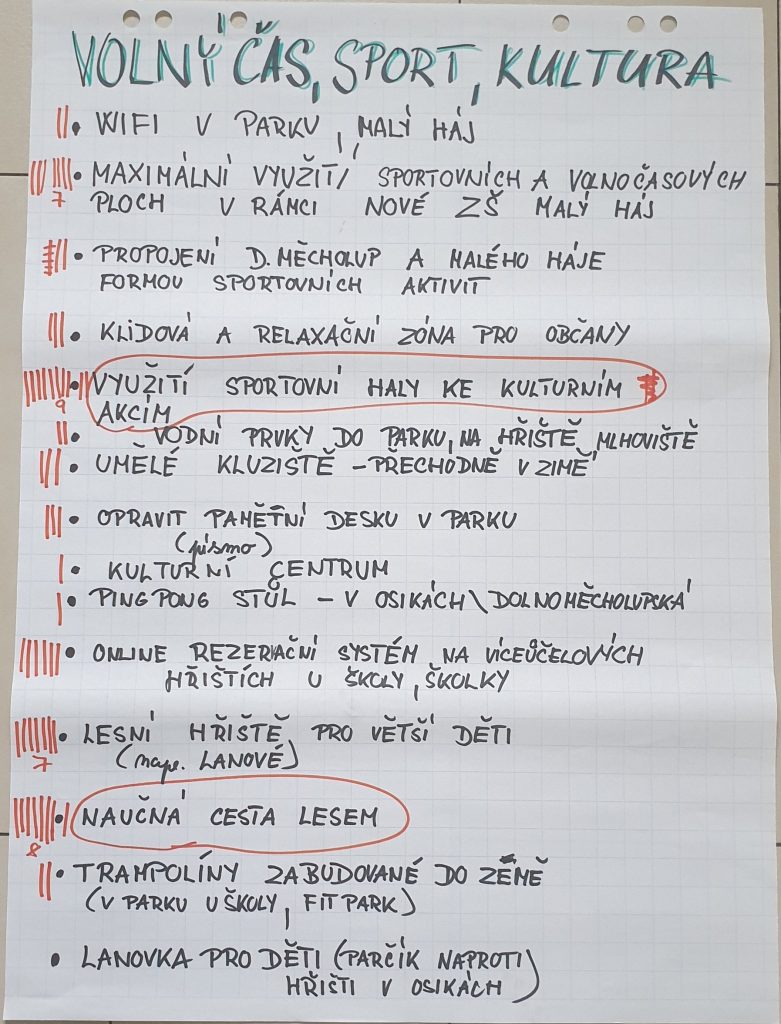 VOLNÝ ČAS, SPORT, KULTURA
• WIFI V PARKU, MALÝ HÁJ
• MAXIMÁLNÍ VYUŽITÍ SPORTOVNÍCH A VOLNOČASOVÝCH
7 PLOCH V RÁMCI NOVÉ ZŠ MALÝ HÁJ
• PROPOJENÍ D. MĚCHOLUP A MALÉHO HÁJE
FORMOU SPORTOVNÍCH AKTIVIT
• KLIDOVÁ A RELAXAČNÍ ZÓNA PRO OBČANY
• VYUŽITÍ SPORTOVNÍ HALY KE KULTURNÍM
9 AKCÍM
• VODNÍ PRVKY DO PARKU, NA HŘIŠTĚ, MLHOVIŠTĚ
• UMĚLÉ KLUZIŠTĚ – PŘECHODNĚ V ZIMĚ
• OPRAVIT PAMĚTNÍ DESKU V PARKU
(písmo)
• KULTURNÍ CENTRUM
• PINGPONG STŮL – V OSIKÁCH \ DOLNOMĚCHOLUPSKÁ
• ONLINE REZERVAČNÍ SYSTÉM NA VÍCEÚČELOVÝCH
HŘIŠTÍCH U ŠKOLY, ŠKOLKY
• LESNÍ HŘIŠTĚ PRO VĚTŠÍ DĚTI
7 (např. LANOVÉ)
• NAUČNÁ CESTA LESEM
8
• TRAMPOLÍNY ZABUDOVANÉ DO ZEMĚ
(V PARKU U ŠKOLY, FITPARK)
• LANOVKA PRO DĚTI (PARČÍK NAPROTI
HŘIŠTI V OSIKÁCH)